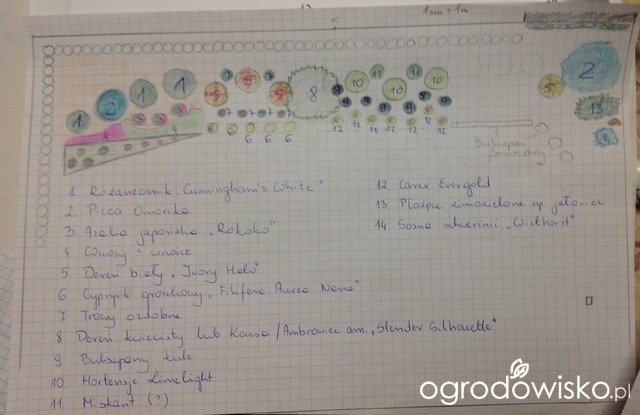 1cm = 1m
1 2 1 1 7 5 7 5 7 5 8 10 11 10 11 10 5 2
13
Bukszpan
formowany
1 Różanecznik „Cunningham's White"
2 Picea Omorika
3 Azalia japońska „Rokoko"
4 Wrzosy i wrzośce
5 Dereń biały „Ivory Halo"
6 Cyprysik groszkowy „Filifera Aurea Nana"
7 Trawy ozdobne
8 Dereń kwiecisty lub Kousa / Ambrowiec am. „Slender Silhouette"
9 Bukszpany kule
10 Hortensje Limelight
11. Miskant (?)
12. Carex Evergold
13 Płożące zimozielone np jałowiec
14. Sosna schwerinii „Wiethorst"
ogrodowisko.pl